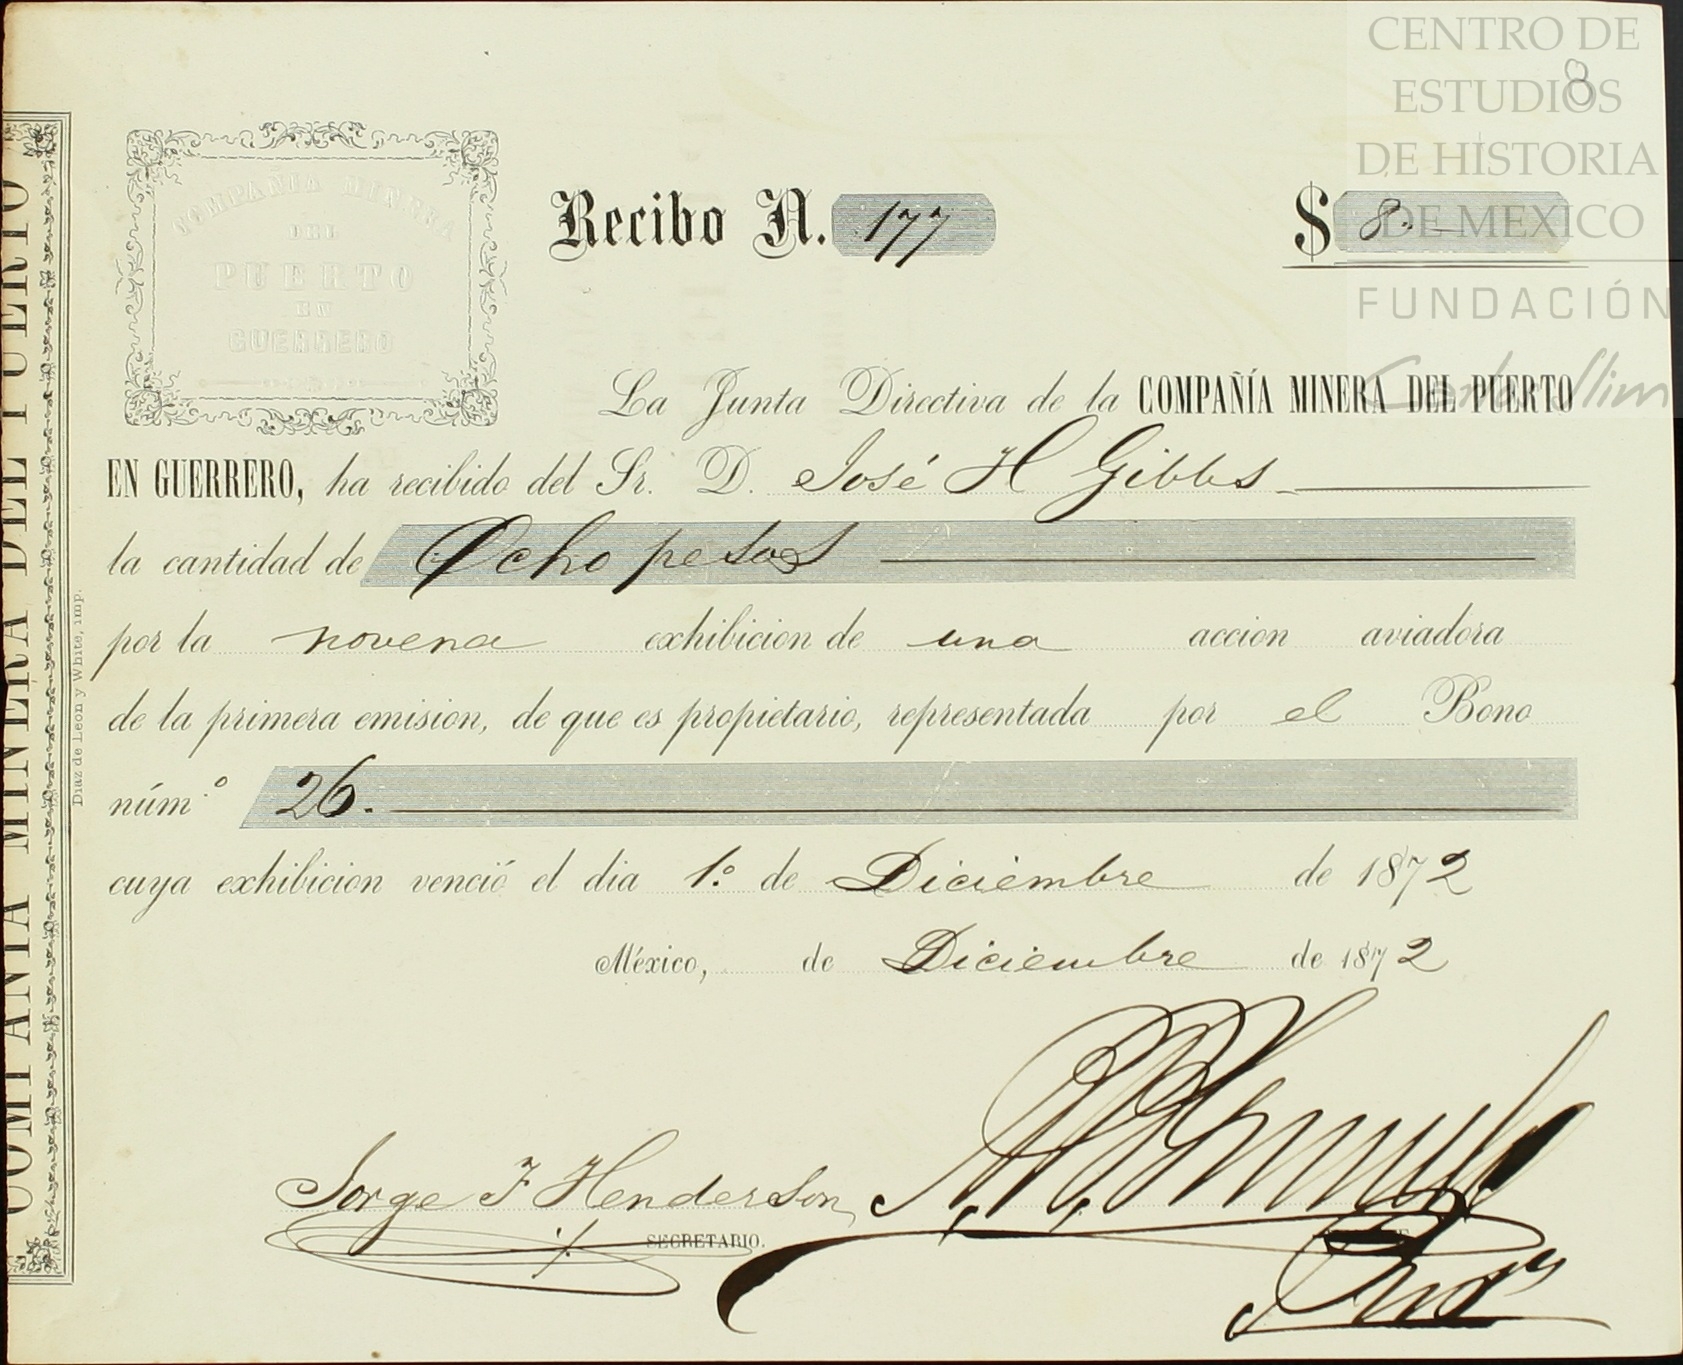 CENTRO DE
ESTUDIOS
DE HISTORIA
DE MEXICO
FUNDACIÓN
Carlos Slim
8
COMPAÑIA MINERA DEL PUERTO
Diaz de Leon y White, imp.
COMPAÑIA MINERA
DEL
PUERTO
EN
GUERRERO
Recibo N. 177 $ 8.
La Junta Directiva de la COMPAÑÍA MINERA DEL PUERTO
EN GUERRERO, ha recibido del Sr. D. José H Gibbs
la cantidad de Ocho pesos
por la novena exhibicion de una accion aviadora
de la primera emision, de que es propietario, representada por el Bono
núm.º 26.
cuya exhibicion venció el dia 1.º de Diciembre de 1872
México, de Diciembre de 1872
Jorge F Henderson
SECRETARIO.